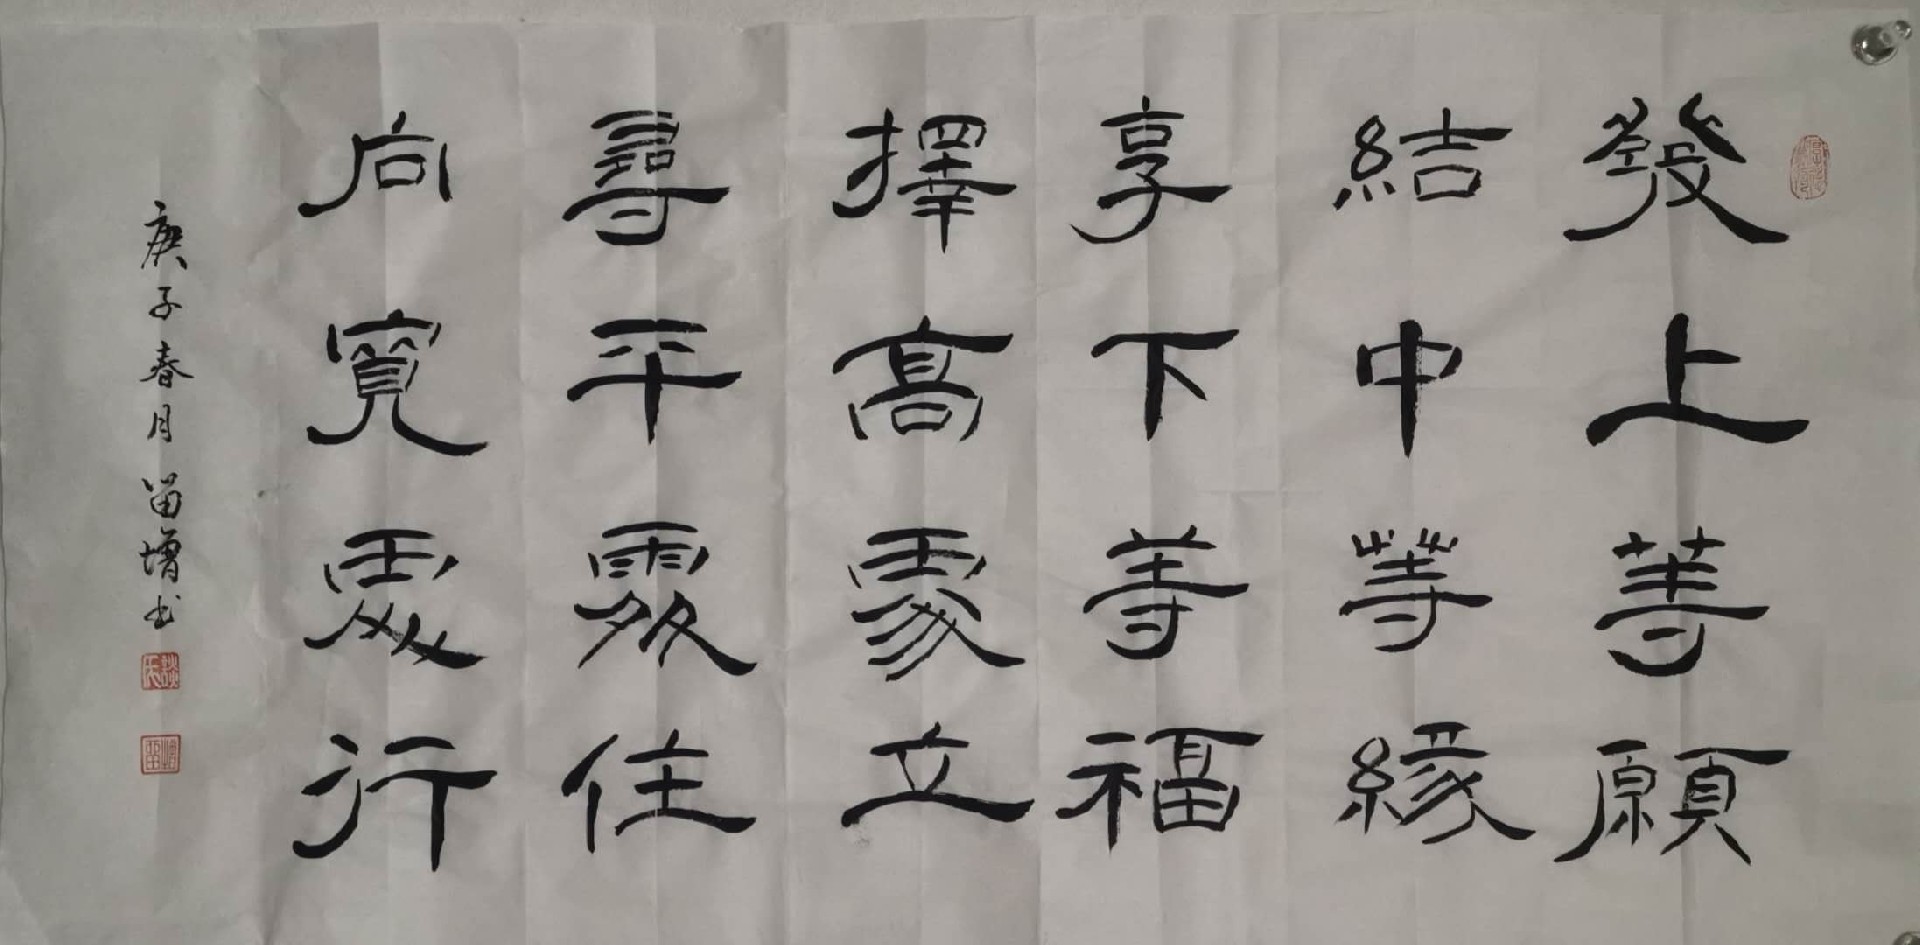 發上等願
結中等緣
享下等福
擇高處立
尋平處住
向寬處行
庚子春月 苗增书